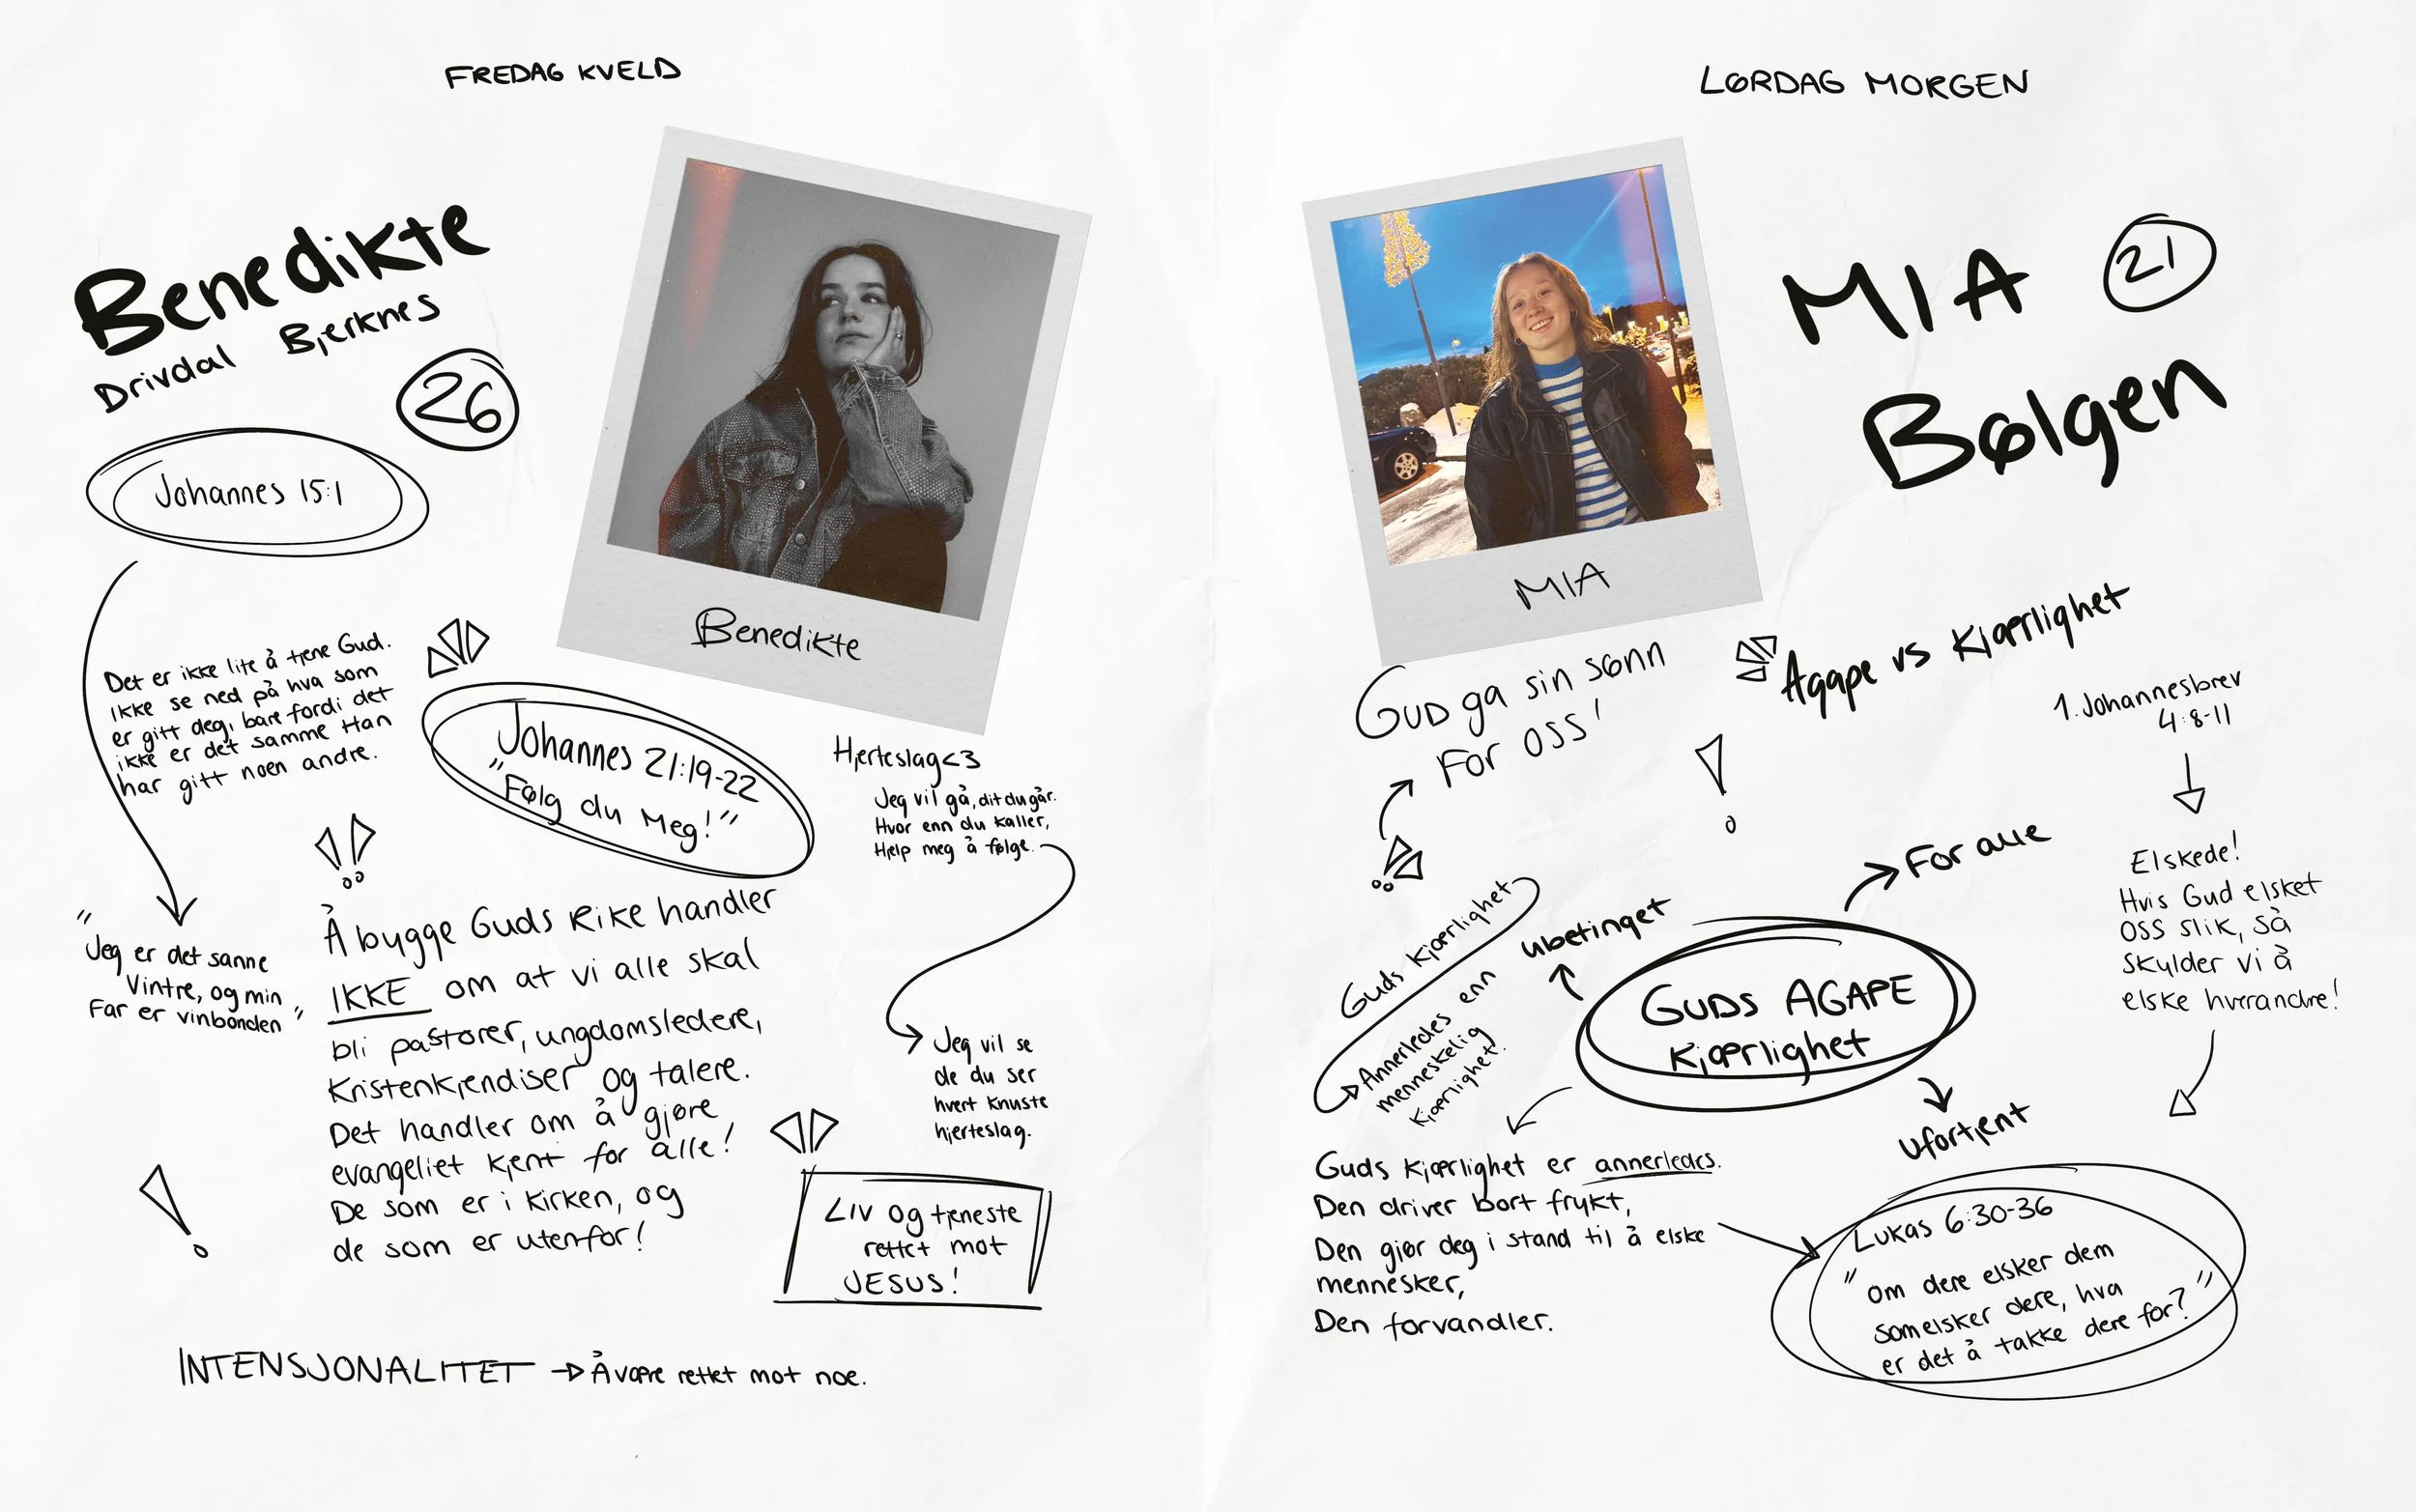 FREDAG KVELD
Benedikte
Drivdal Bjerknes
26
Johannes 15:1
Benedikte
Det er ikke lite å tjene Gud.
Ikke se ned på hva som
er gitt deg, bare fordi det
ikke er det samme Han
har gitt noen andre.
Johannes 21:19-22
"Følg du Meg!"
Hjerteslag<3
Jeg vil gå, dit du går.
Hvor enn du kaller,
Hjelp meg å følge.
"Jeg er det sanne
Vintre, og min
Far er vinbonden"
Å bygge Guds Rike handler
IKKE om at vi alle skal
bli pastorer, ungdomsledere,
Kristenkjendiser og talere.
Det handler om å gjøre
evangeliet kjent for alle!
De som er i kirken, og
de som er utenfor!
Jeg vil se
de du ser
hvert knuste
hjerteslag.
Liv og tjeneste
rettet mot
JESUS!
INTENSJONALITET → Å være rettet mot noe.
LØRDAG MORGEN
MIA
21
Bølgen
MIA
GUD ga sin sønn
For oss!
Agape vs Kjærlighet
1. Johannesbrev
4:8-11
Elskede!
Hvis Gud elsket
oss slik, så
skylder vi å
elske hverandre!
Guds Kjærlighet
Annerledes enn
menneskelig
Kjærlighet.
ubetinget
For alle
GUDS AGAPE
Kjærlighet
ufortjent
Guds Kjærlighet er annerledes.
Den driver bort frykt,
Den gjør deg i stand til å elske
mennesker,
Den forvandler.
Lukas 6:30-36
"Om dere elsker dem
som elsker dere, hva
er det å takke dere for?"